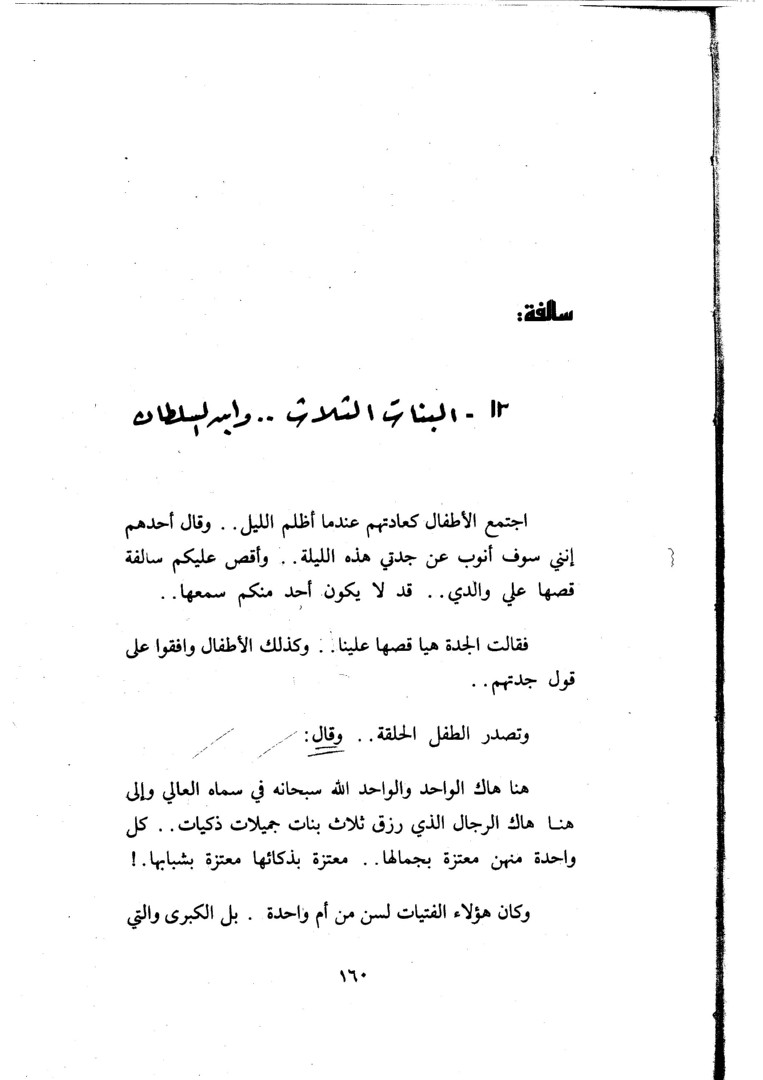 سالفة:
١٢ - البنات الثلاث .. وابن السلطان
اجتمع الأطفال كعادتهم عندما أظلم الليل.. وقال أحدهم
إنني سوف أنوب عن جدتي هذه الليلة.. وأقص عليكم سالفة
قصها علي والدي.. قد لا يكون أحد منكم سمعها..
فقالت الجدة هيا قصها علينا.. وكذلك الأطفال وافقوا على
قول جدتهم..
وتصدر الطفل الحلقة.. وقال:
هنا هاك الواحد والواحد الله سبحانه في سماه العالي وإلى
هنا هاك الرجال الذي رزق ثلاث بنات جميلات ذكيات.. كل
واحدة منهن معتزة بجمالها.. معتزة بذكائها معتزة بشبابها.!
وكان هؤلاء الفتيات لسن من أم واحدة . بل الكبرى والتي
١٦٠